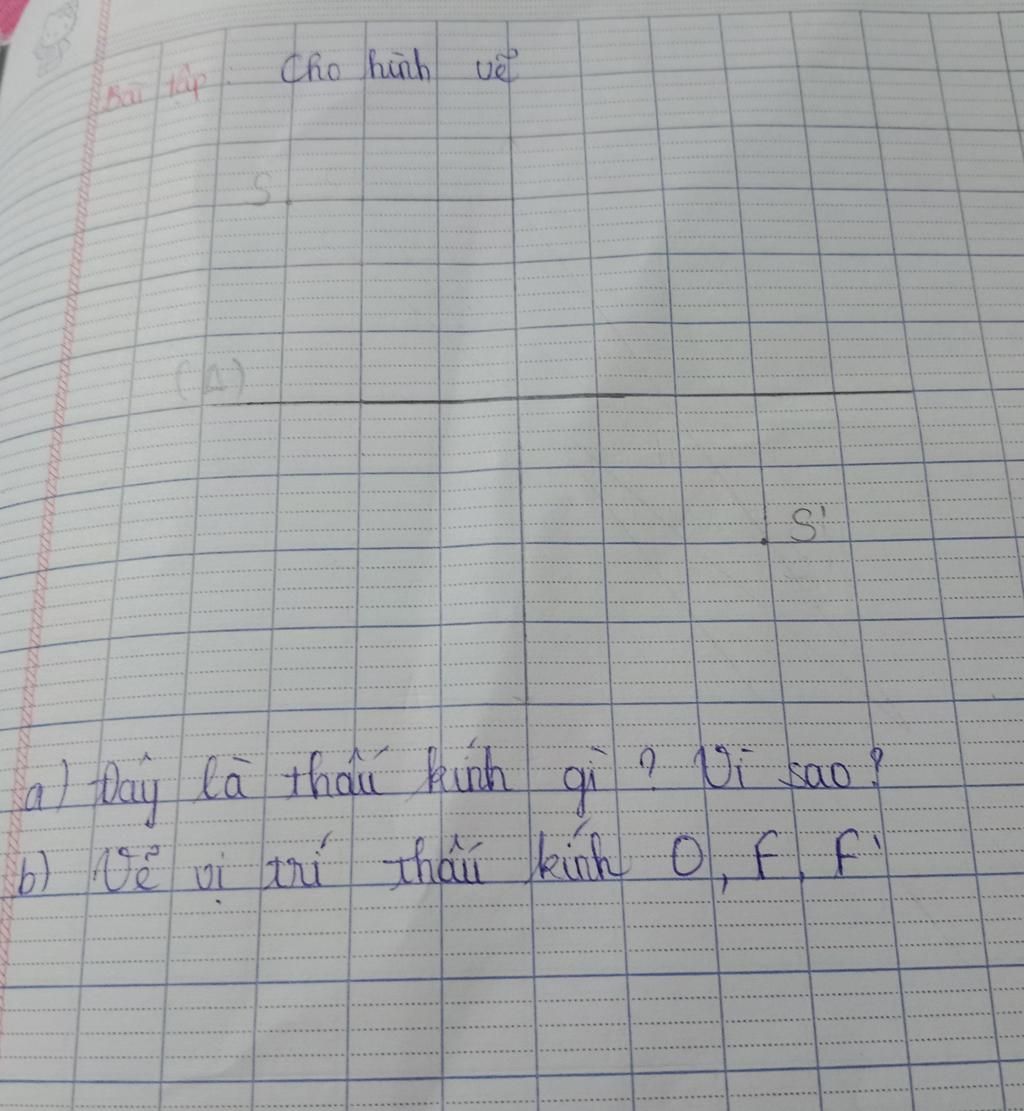 Bài tập: Cho hình vẽ
S
(Δ)
S'
a) Đây là thấu kính gì? Vì sao?
b) Vẽ vị trí thấu kính O, F, F'